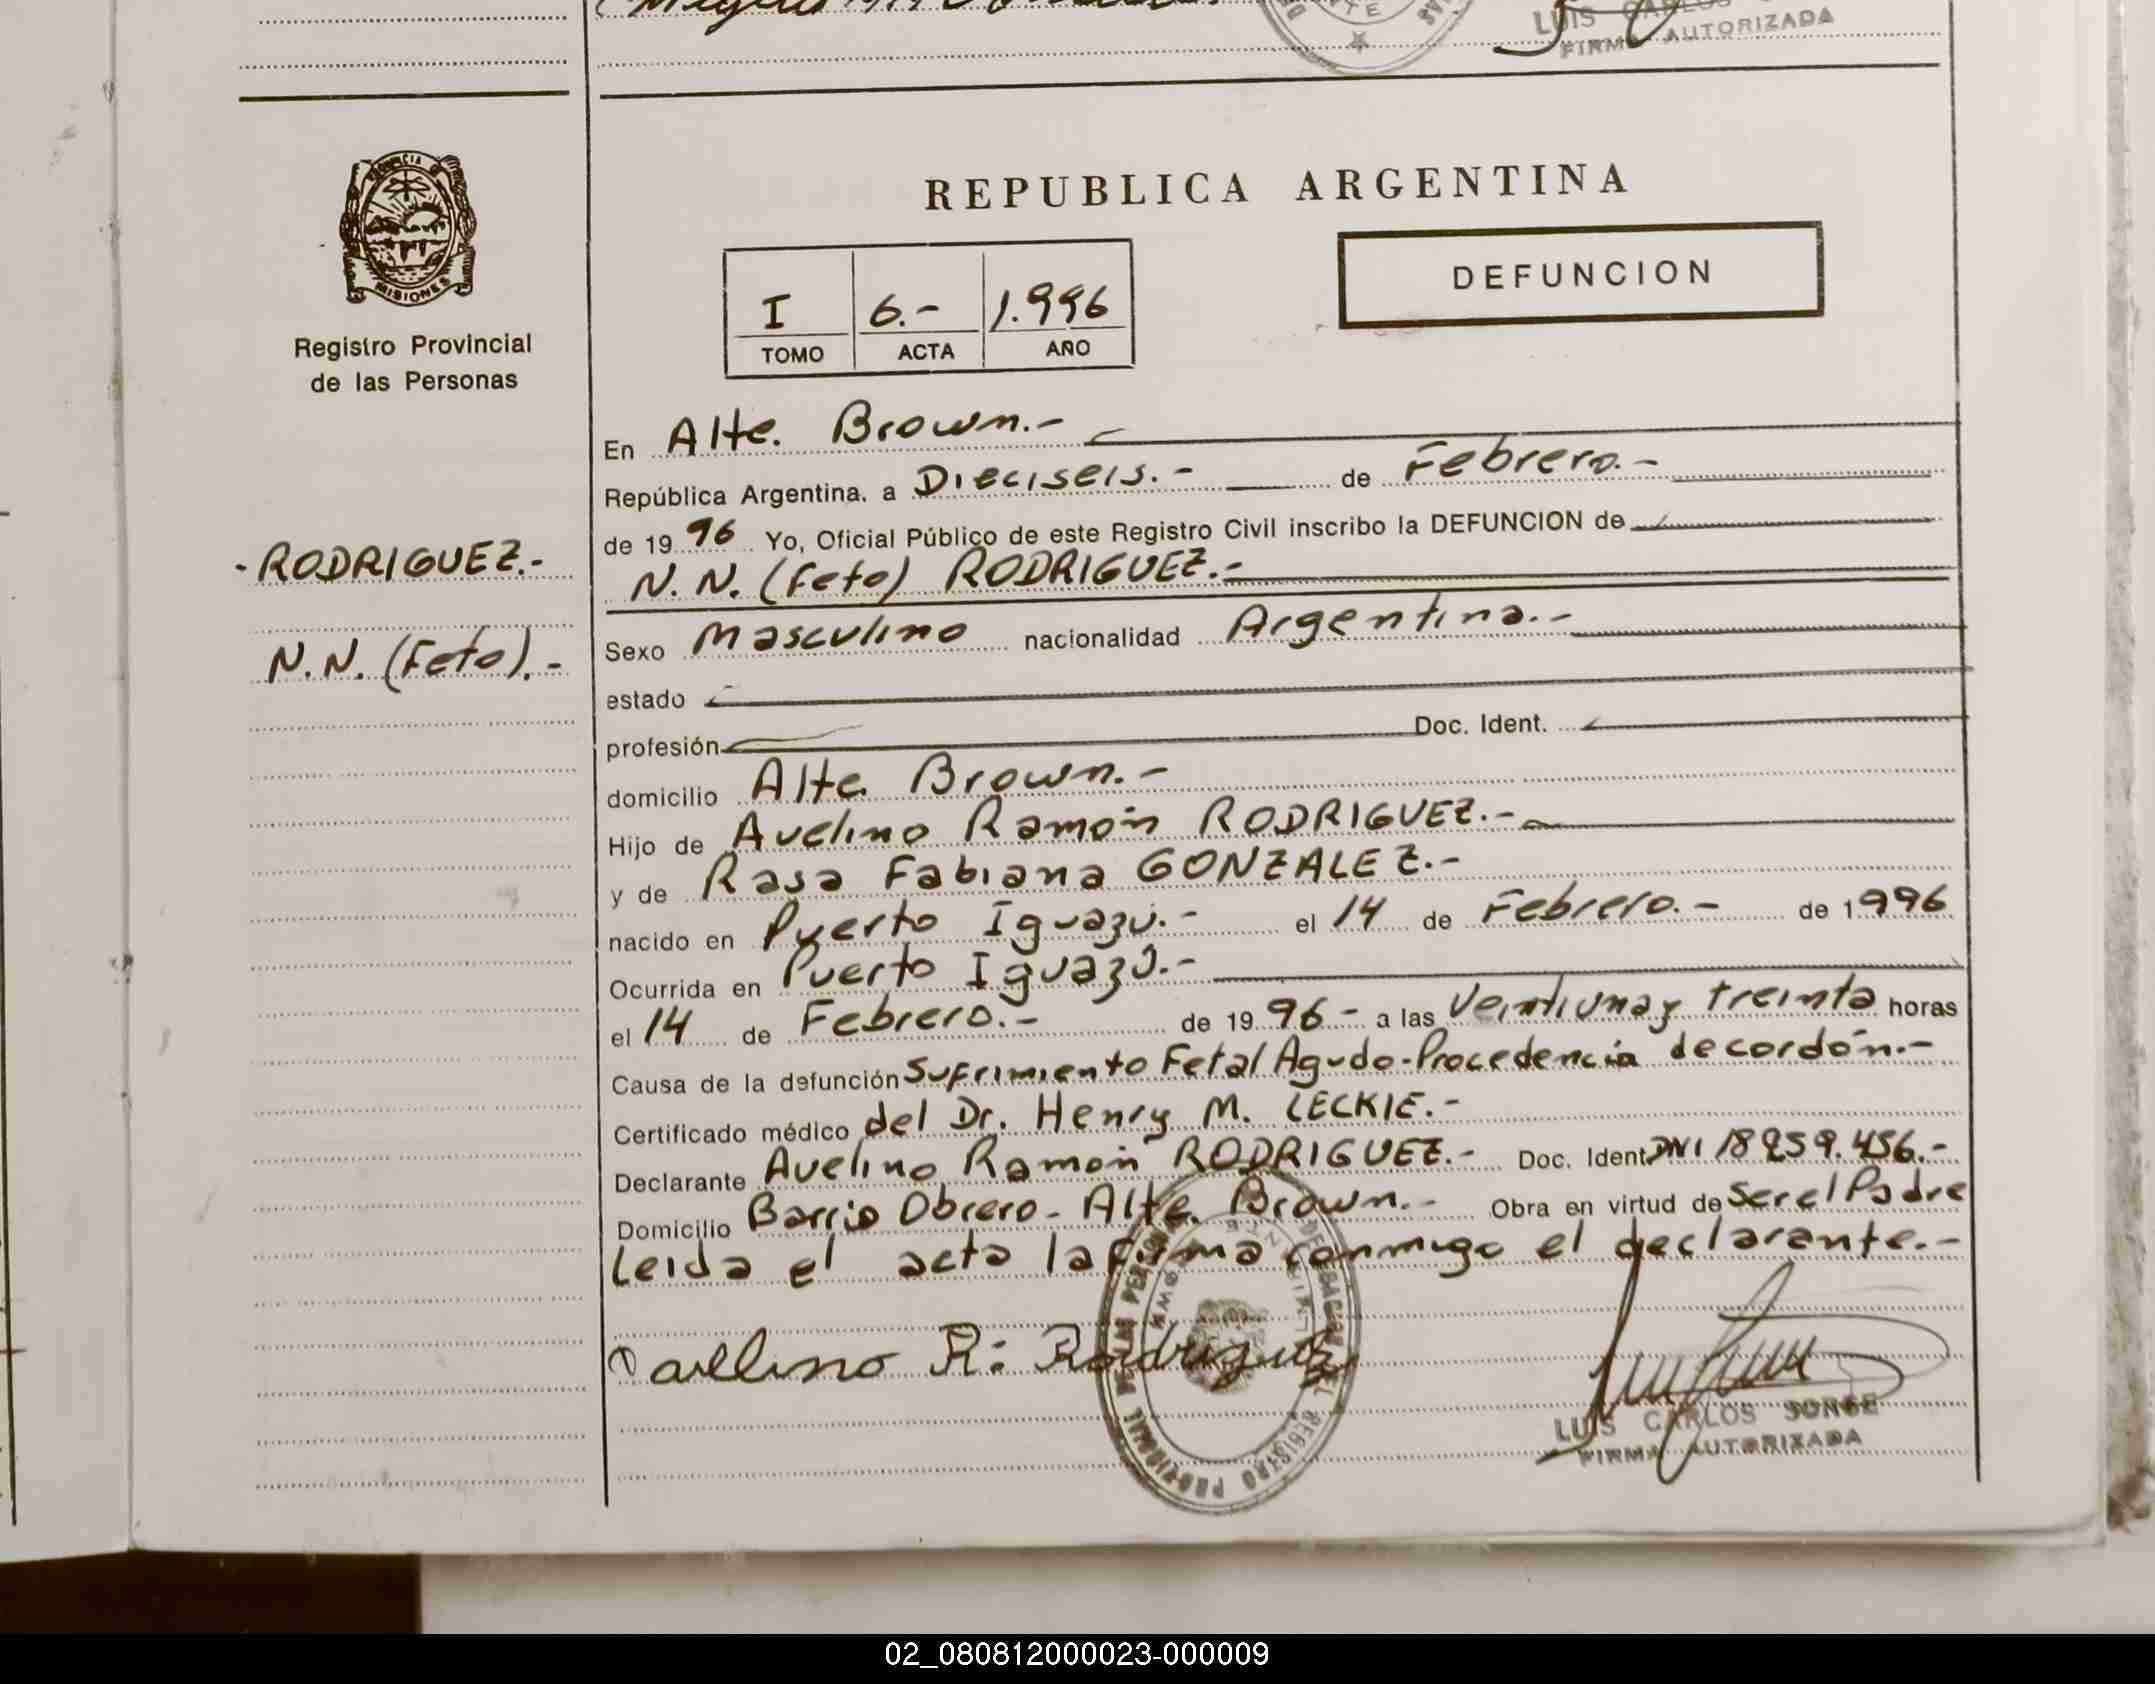 LUIS CARLOS
FIRMA AUTORIZADA
PROVINCIA DE
MISIONES
Registro Provincial
de las Personas
REPUBLICA ARGENTINA
I 6.- 1.996
TOMO ACTA AÑO
DEFUNCION
-RODRIGUEZ.-
N.N. (Feto).-
En Alte. Brown.-
República Argentina, a Dieciseis.- de Febrero.-
de 19 96 Yo, Oficial Público de este Registro Civil inscribo la DEFUNCION de
N.N. (Feto) RODRIGUEZ.-
Sexo Masculino nacionalidad Argentina.-
estado
profesión Doc. Ident.
domicilio Alte. Brown.-
Hijo de Avelino Ramón RODRIGUEZ.-
y de Rasa Fabiana GONZALEZ.-
nacido en Puerto Iguazú.- el 14 de Febrero.- de 1996
Ocurrida en Puerto Iguazú.-
el 14 de Febrero.- de 19 96- a las Veintiuna y treinta horas
Causa de la defunción Sufrimiento Fetal Agudo-Procedencia de cordón.-
Certificado médico del Dr. Henry M. LECKIE.-
Declarante Avelino Ramón RODRIGUEZ.- Doc. Ident. DNI 18 259.456.-
Domicilio Barrio Obrero- Alte. Brown.- Obra en virtud de Ser el Padre
Leida el acta la firma conmigo el declarante.-
R: Rodriguez
REGISTRO PROVINCIAL DE LAS PERSONAS
LUIS CARLOS JUNGE
FIRMA AUTORIZADA
02_080812000023-000009